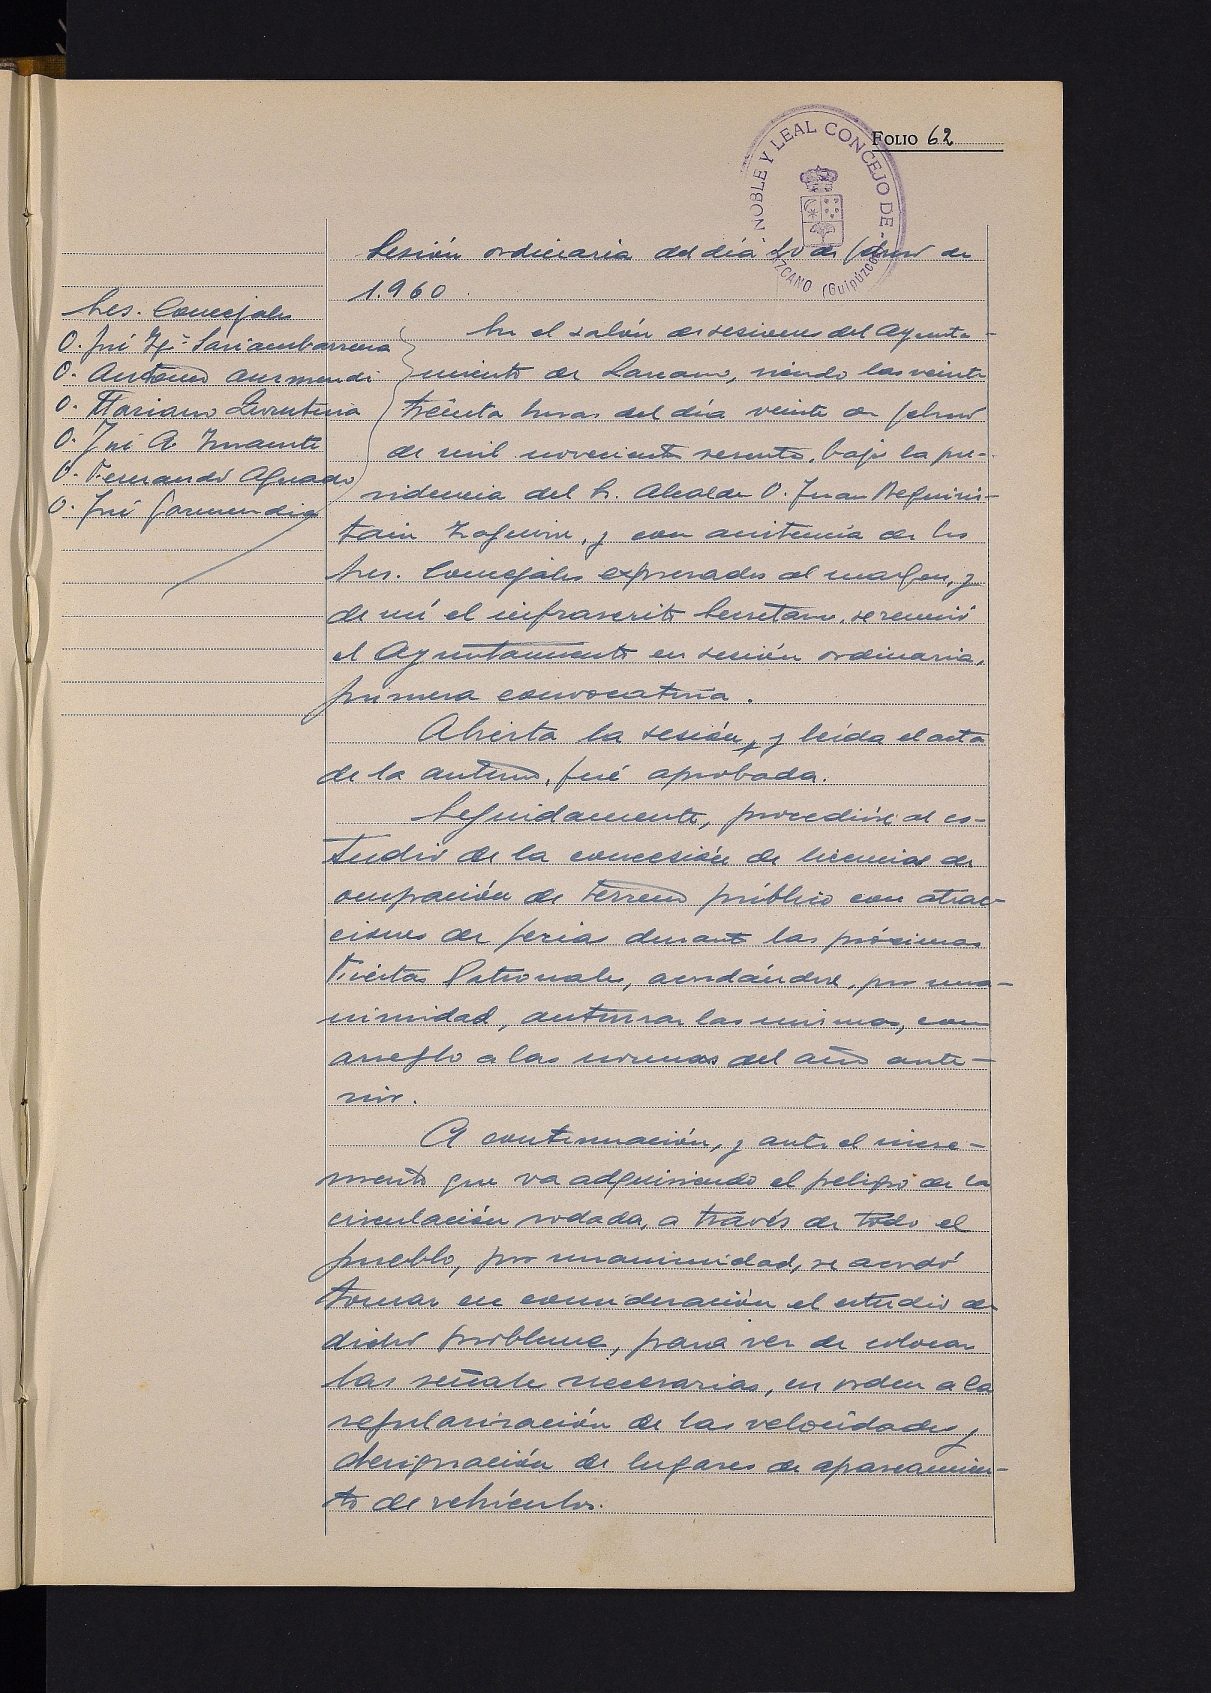 FOLIO 62
NOBLE Y LEAL CONCEJO DE
LAZCANO (Guipúzcoa)
Sesión ordinaria del día 20 de febrero de
1.960
Sres. Concejales
D. José Mª Sarriamb​arrena
D. Antonio Aurmendi
D. Mariano
D. José A. Insausti
D. Fernando Aguado
D. José Garmendia
En el salón de sesiones del Ayunta-
miento de Lazcano, siendo las veinte
treinta horas del día veinte de febrero
de mil novecientos sesenta, bajo la pre-
sidencia del Sr. Alcalde D. Juan Beguiris-
tain, y con asistencia de los
Sres. Concejales expresados al margen, y
de mí el infrascrito Secretario, se reunió
el Ayuntamiento en sesión ordinaria,
primera convocatoria.
Abierta la sesión, y leída el acta
de la anterior, fué aprobada.
Seguidamente, procedióse al es-
tudio de la concesión de licencias de
ocupación de terreno público con atrac-
ciones de feria durante las próximas
Fiestas Patronales, acordándose, por una-
nimidad, autorizar las mismas, con
arreglo a las normas del año ante-
rior.
A continuación, y ante el incre-
mento que va adquiriendo el peligro de la
circulación rodada, a través de todo el
pueblo, por unanimidad, se acordó
tomar en consideración el estudio de
dicho problema, para ver de colocar
las señales necesarias, en orden a la
regularización de las velocidades y
designación de lugares de aparcamien-
to de vehículos.